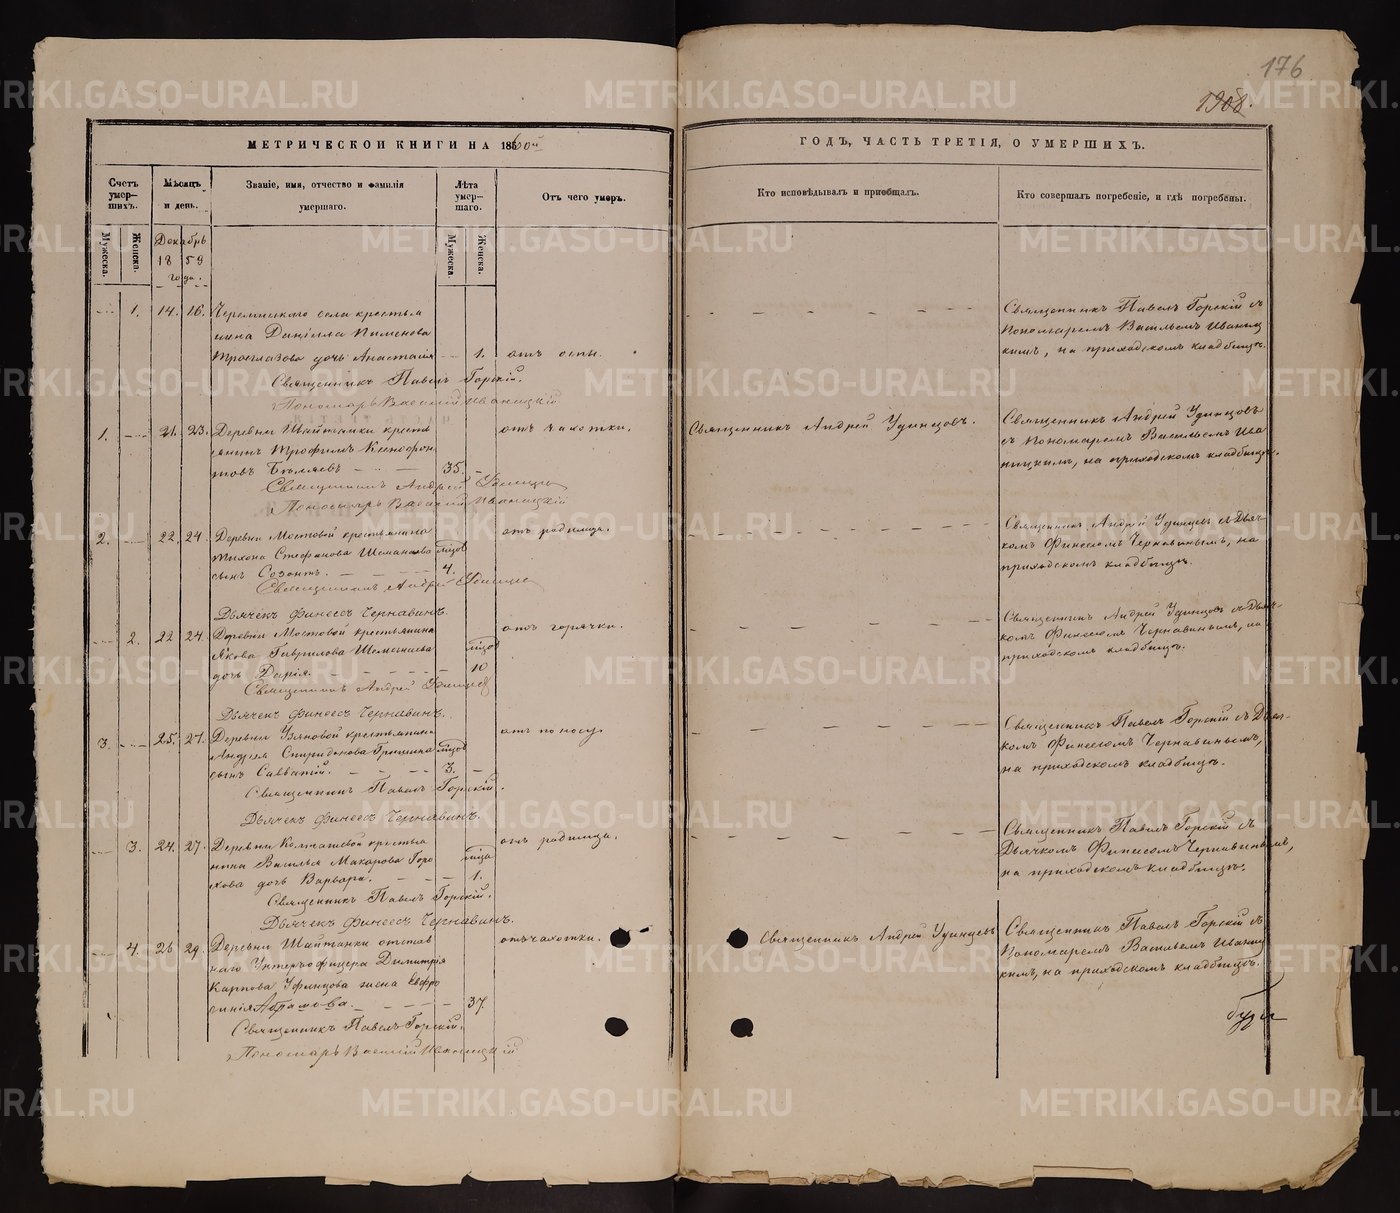 176
1908.
МЕТРИЧЕСКОЙ КНИГИ НА 1860й
ГОДЪ, ЧАСТЬ ТРЕТІЯ, О УМЕРШИХЪ.
Счетъ умер-шихъ.
Мужеска.
Женска.
Мѣсяцъ и день.
Званіе, имя, отчество и фамилія умершаго.
Лѣта умер-шаго.
Мужеска.
Женска.
Отъ чего умеръ.
Кто исповѣдывалъ и пріобщалъ.
Кто совершалъ погребеніе, и гдѣ погребены.
Декабрь
18 59
года.
1. 14. 16. Черемисскаго села крестья
нина Даніила Пименова
Троеглазова дочь Анастасія 1. отъ оспы.
Священникъ Павелъ Горскій.
Пономарь Василій Иваницкій
Священникъ Павелъ Горскій съ
Пономаремъ Васильемъ Иваниц
кимъ, на приходскомъ кладбищѣ.
1. 21. 23. Деревни Шайтанки кресть
янинъ Трофимъ Ксенофон
товъ Бѣляевъ 35. отъ чахотки.
Священникъ Андрей Удинцовъ
Пономарь Василій Иваницкій
Священникъ Андрей Удинцовъ.
Священникъ Андрей Удинцовъ
съ Пономаремъ Васильемъ Ива
ницкимъ, на приходскомъ кладбищѣ.
2. 22. 24. Деревни Мостовой крестьянина
Тихона Стефанова Шеманаева мѣсяцовъ
сынъ Созонтъ. 4. отъ родимца.
Священникъ Андрей Удинцовъ
Дьячекъ Финеесъ Чернавинъ.
Священникъ Андрей Удинцевъ съ Дьяч-
комъ Финеесомъ Чернавинымъ, на
приходскомъ кладбищѣ.
2. 22 24. Деревни Мостовой крестьянина
Якова Гаврилова Шеманаева мѣсяцовъ
дочь Дарія. 10 отъ горячки.
Священникъ Андрей Удинцовъ
Дьячекъ Финеесъ Чернавинъ.
Священникъ Андрей Удинцовъ съ Дьяч-
комъ Финеесомъ Чернавинымъ, на
приходскомъ кладбищѣ.
3. 25. 27. Деревни Узяновой крестьянина
Андрея Спиридонова Гришина
сынъ Савватій. 3. отъ поносу.
Священникъ Павелъ Горскій.
Дьячекъ Финеесъ Чернавинъ.
Священникъ Павелъ Горскій съ Дьяч-
комъ Финеесомъ Чернавинымъ,
на приходскомъ кладбищѣ.
3. 24. 27. Деревни Колташевой крестья
нина Василья Макарова Горо
хова дочь Варвара. 1. отъ родимца.
Священникъ Павелъ Горскій.
Дьячекъ Финеесъ Чернавинъ.
Священникъ Павелъ Горскій съ
Дьячкомъ Финеесомъ Чернавинымъ,
на приходскомъ кладбищѣ.
4. 26 29. Деревни Шайтанки отстав
наго Унтеръофицера Димитрія
Карпова Удинцова жена Евфро
синія Абрамова. 37. отъ чахотки.
Священникъ Павелъ Горскій.
Пономарь Василій Иваницкій
Священникъ Андрей Удинцевъ
Священникъ Павелъ Горскій съ
Пономаремъ Васильемъ Иваниц
кимъ, на приходскомъ кладбищѣ.
METRIKI.GASO-URAL.RU